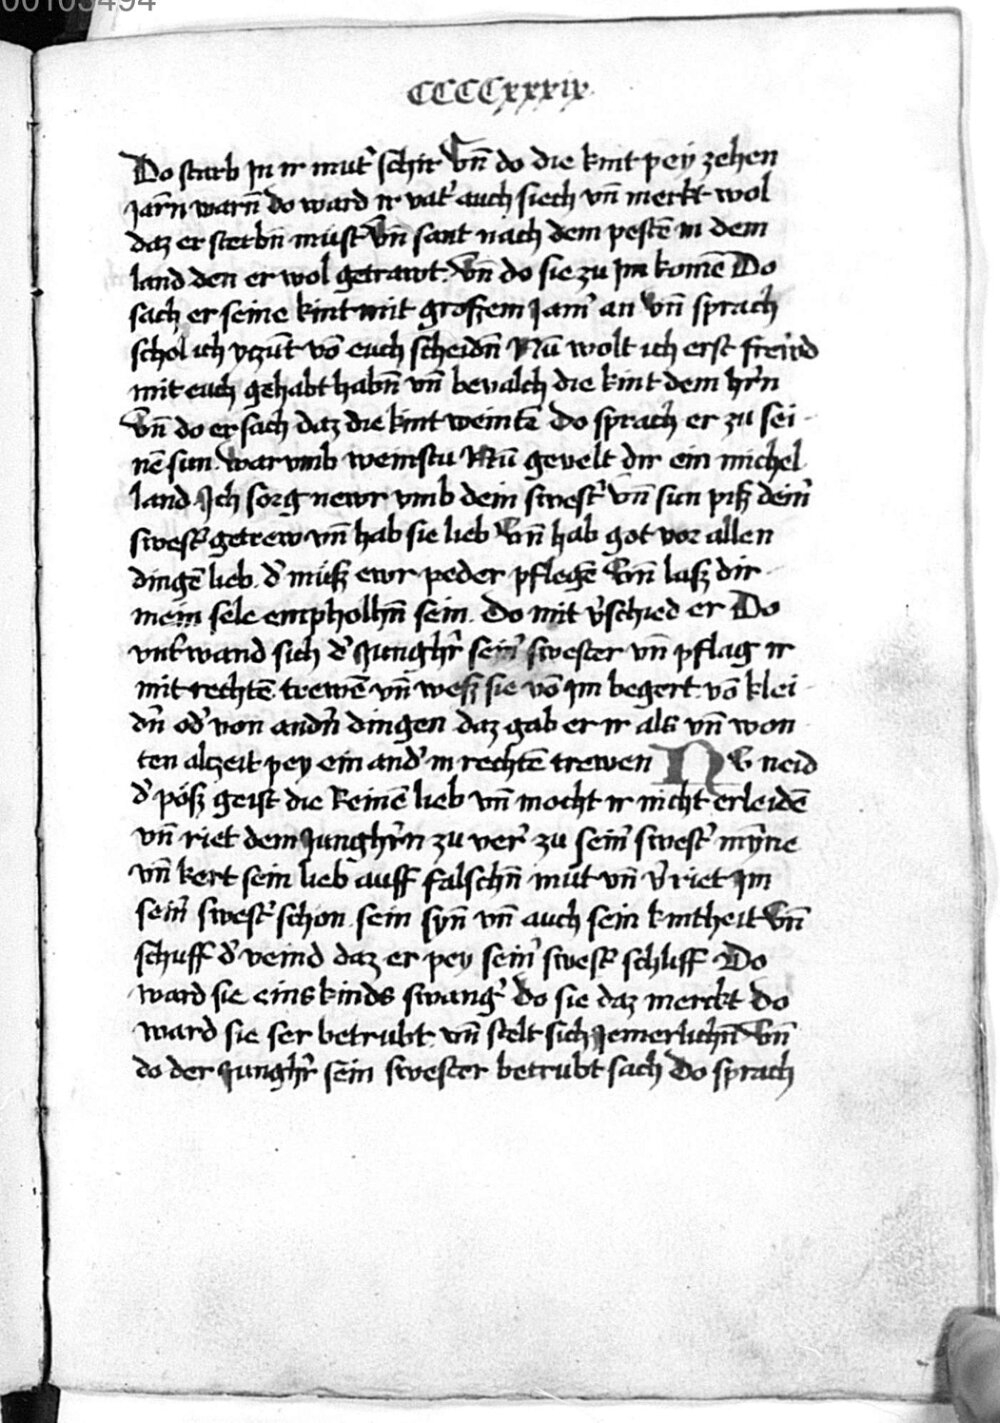 00103494
CCCCxxxix
Do starb jn ir mut' schir Vn̄ do die kint pey zehen
jarn̄ warn̄ do ward ir vat' auch siech vn̄ merkt wol
daz er sterbn̄ must Vn̄ sant nach dem pestē in dem
land den er wol getrawt. Vn̄ do sie zu jm komē Do
sach er seine kint mit groszem jam' an Vn̄ sprach
schol ich yczūt vō euch scheidn̄ Nū wolt ich erst frewd
mit euch gehabt habn̄ vn̄ bevalch die kint dem hr̄n
Vn̄ do er sach daz die kint weintē Do sprach er zu sei
nē sun. War vmb weinstu Nū gevelt dir ein michel
land Ich sorg newr vmb dein swest' Vn̄ sun pisz dein'
swest' getrew vn̄ hab sie lieb Vn̄ hab got vor allen
dingē lieb. d' müsz ewr peder pflegē Vn̄ lasz dir
mein sele empholhn̄ sein. Do mit v'schied er Do
vnt'wand sich d' Jungh'r sein' swester vn̄ pflag ir
mit rechtē trewē vn̄ wesz sie vō jm begert vō klei
dn̄ od' von andn̄ dingen daz gab er ir als vn̄ won
ten alczeit pey ein and' in rechtē trewen NV neid
d' pösz geist die Reinē lieb vn̄ mocht ir nicht erleidē
vn̄ riet dem Jungh'rn zu ver' zu sein' swest' mỹne
vn̄ kert sein lieb auff falschn̄ mut vn̄ v'riet jm
sein' swest' schon. sein syn̄ vn̄ auch sein kintheit Vn̄
schuff d' veind daz er pey sein' swest' schliff Do
ward sie eins kinds swang' Do sie daz merckt Do
ward sie ser betrubt vn̄ stelt sich Jemerlichn̄ Vn̄
do der Jungh'r sein swester betrubt sach Do sprach